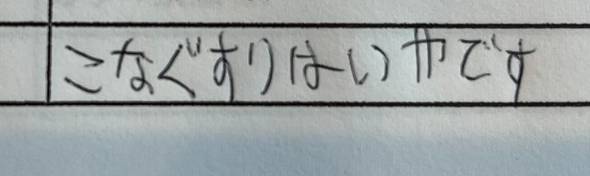 こなぐすりはいやです